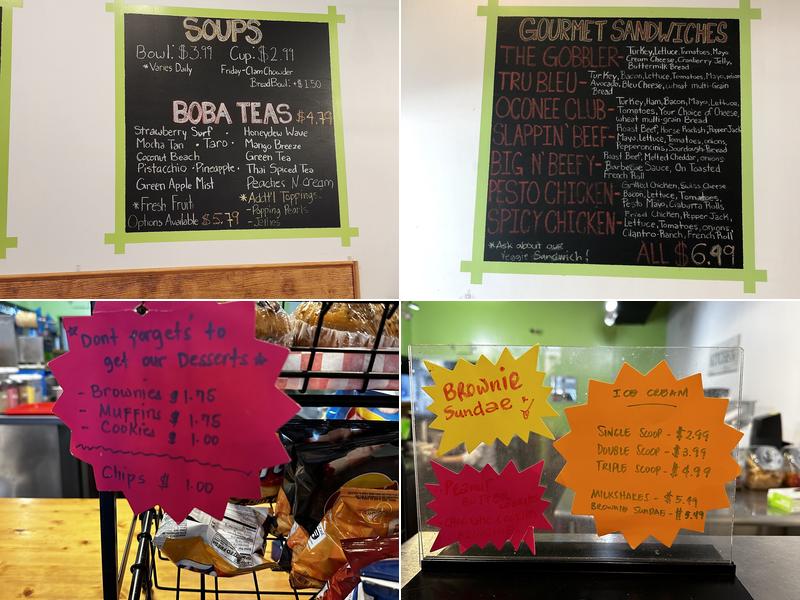 SOUPS
Bowl: $3.99 Cup: $2.99
*Varies Daily Friday-Clam Chowder
Bread Bowl: +$1.50
BOBA TEAS $4.79
Strawberry Surf • Honeydew Wave
Mocha Tan • Taro • Mango Breeze
Coconut Beach Green Tea
Pistacchio • Pineapple • Thai Spiced Tea
Green Apple Mist Peaches N Cream
*Fresh Fruit *Addt'l Toppings-
Options Available $5.79 -Popping Pearls
-Jellies
GOURMET SANDWICHES
THE GOBBLER- Turkey, Lettuce, Tomatoes, Mayo
Cream Cheese, Cranberry Jelly,
Buttermilk Bread
TRU BLEU- Turkey, Bacon, Lettuce, Tomatoes, Mayo, onion
Avocado, Bleu Cheese, wheat multi-Grain
Bread
OCONEE CLUB- Turkey, Ham, Bacon, Mayo, Lettuce,
Tomatoes, Your Choice of Cheese,
wheat multi-grain Bread
SLAPPIN' BEEF- Roast Beef, Horse Radish, PepperJack
Mayo, Lettuce, Tomatoes, onions,
Pepperoncinis, Sourdough Bread
BIG N' BEEFY- Roast Beef, Melted Cheddar, onions
Barbeque Sauce, On Toasted
French Roll
PESTO CHICKEN- Grilled Chicken, Swiss Cheese
Bacon, Lettuce, Tomatoes,
Pesto Mayo, Ciabatta Rolls
SPICY CHICKEN- Fried Chicken, Pepper Jack,
Lettuce, Tomatoes, onions,
Cilantro-Ranch, French Roll
*Ask about our
Veggie Sandwich! ALL $6.99
*Dont forgets to
get our Desserts*
- Brownies $1.75
- Muffins $1.75
- Cookies $1.00
Chips $1.00
BROWNIE
Sundae
Peanut
ICE CREAM
SINGLE SCOOP - $2.99
DOUBLE SCOOP - $3.99
TRIPLE SCOOP - $4.99
MILKSHAKES - $5.49
BROWNIE SUNDAE - $5.49